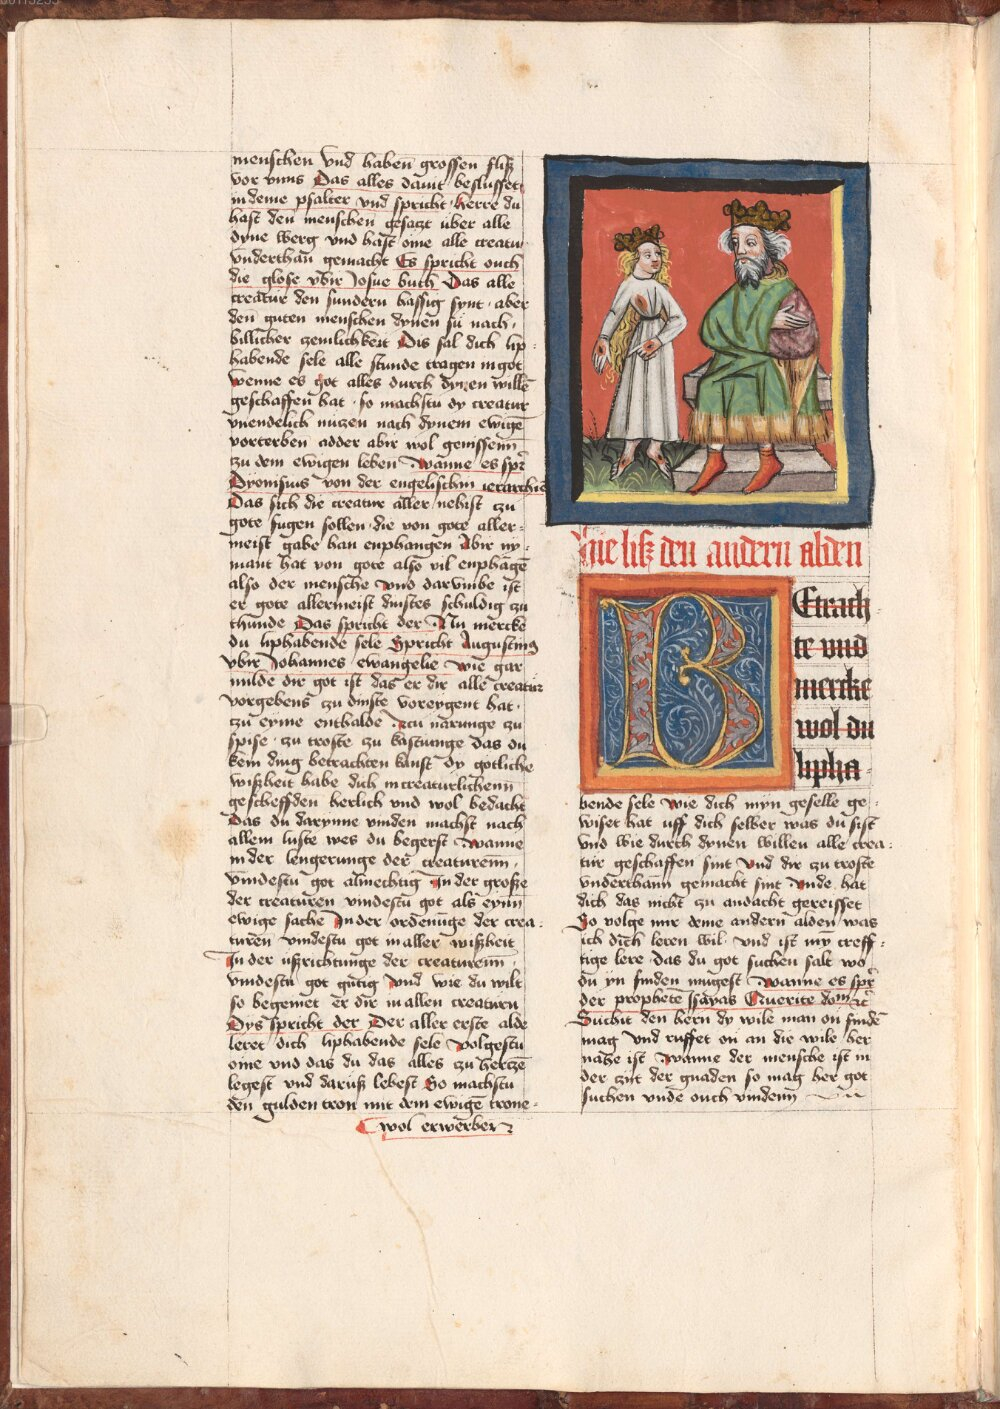 menschen vnd haben grossen fliß
vor vnns Das alles dauit beslusset
in deme psalter vnd spricht herre du
hast den menschen gesatzt uber alle
dyne werg vnd hast eme alle creatur
vnderthan gemacht Es spricht ouch
die glose vbir Josue buch Das alle
creatur den sundern hassig synt · aber
den guten menschen dynen sü nach
billicher zemlichkeit Dis sal dich lip
habende sele alle stunde tragen in got
wenne es got alles durch dynen willē
geschaffen hat · so machstu dy creatur
vnendelich nutzen nach dynem ewigē
vorterben adder abir wol genissenn
zu dem ewigen leben Wanne es spr̄
Dyonisius von der engelischin ierarchiē
Das sich die creature aller nehist zu
gote fugen sollen · die von gote aller
meist gabe han enphangen Abir ny
mant hat von gote also vil enphāgē
also der mensche vnd darvmbe ist
er gote allermeist dinstes schuldig zu
thunde Das spricht der Nu mercke
du liphabende sele Spricht Augustinus
vbir Johannes ewangelie Wie gar
milde dir got ist das er dir alle creatur
vorgebens zu dinste voreygent hat ·
zu eyme enthalde zcu narunge zu
spise · zu troste zu kastunge das du
kein ding betrachten kanst dy gotliche
wißheit habe dich in creaturlichenn
gescheffden herlich vnd wol bedacht
Das du darynne vinden machst nach
allem luste wes du begerst Wanne
in der lengerunge der creaturenn ·
vindestu got almechtig In der große
der creaturen vindestu got als eynn
ewige sache In der ordenūge der crea
turen vindestu got in aller wißheit
In der ußrichtunge der creaturenn
vindestu got gutig vnd wie du wilt
so begeinet er dir in allen creaturn
Dys spricht der Der aller erste alde
leret dich liphabende sele volgestu
eme vnd das du das alles zu hertzē
legest vnd daruß lebest So machstu
den gulden tron mit dem ewigē trone
wol erwerben
Hie liß den andern alden
BEtrach
te vnd
mercke
wol du
lipha
bende sele wie dich myn geselle ge
wiset hat uff dich selber was du sist
vnd wie durch dynen willen alle crea
tur geschaffen sint vnd dir zu troste
vnderthann gemacht sint vnde hat
dich das nicht zu andacht gereisset
So volge mir deme andern alden was
ich dich leren wil · vnd ist my̅ treff
tige lere das du got suchen salt wo
du yn finden mugest Wanne es spr̄
der prophete Isayas Querite dom̄ ꝛc̄
Suchit den hern dy wile man on findē
mag vnd ruffet on an die wile her
nahe ist Wanne der mensche ist in
der zyt der gnaden so mag her got
suchen vnde ouch vindenn